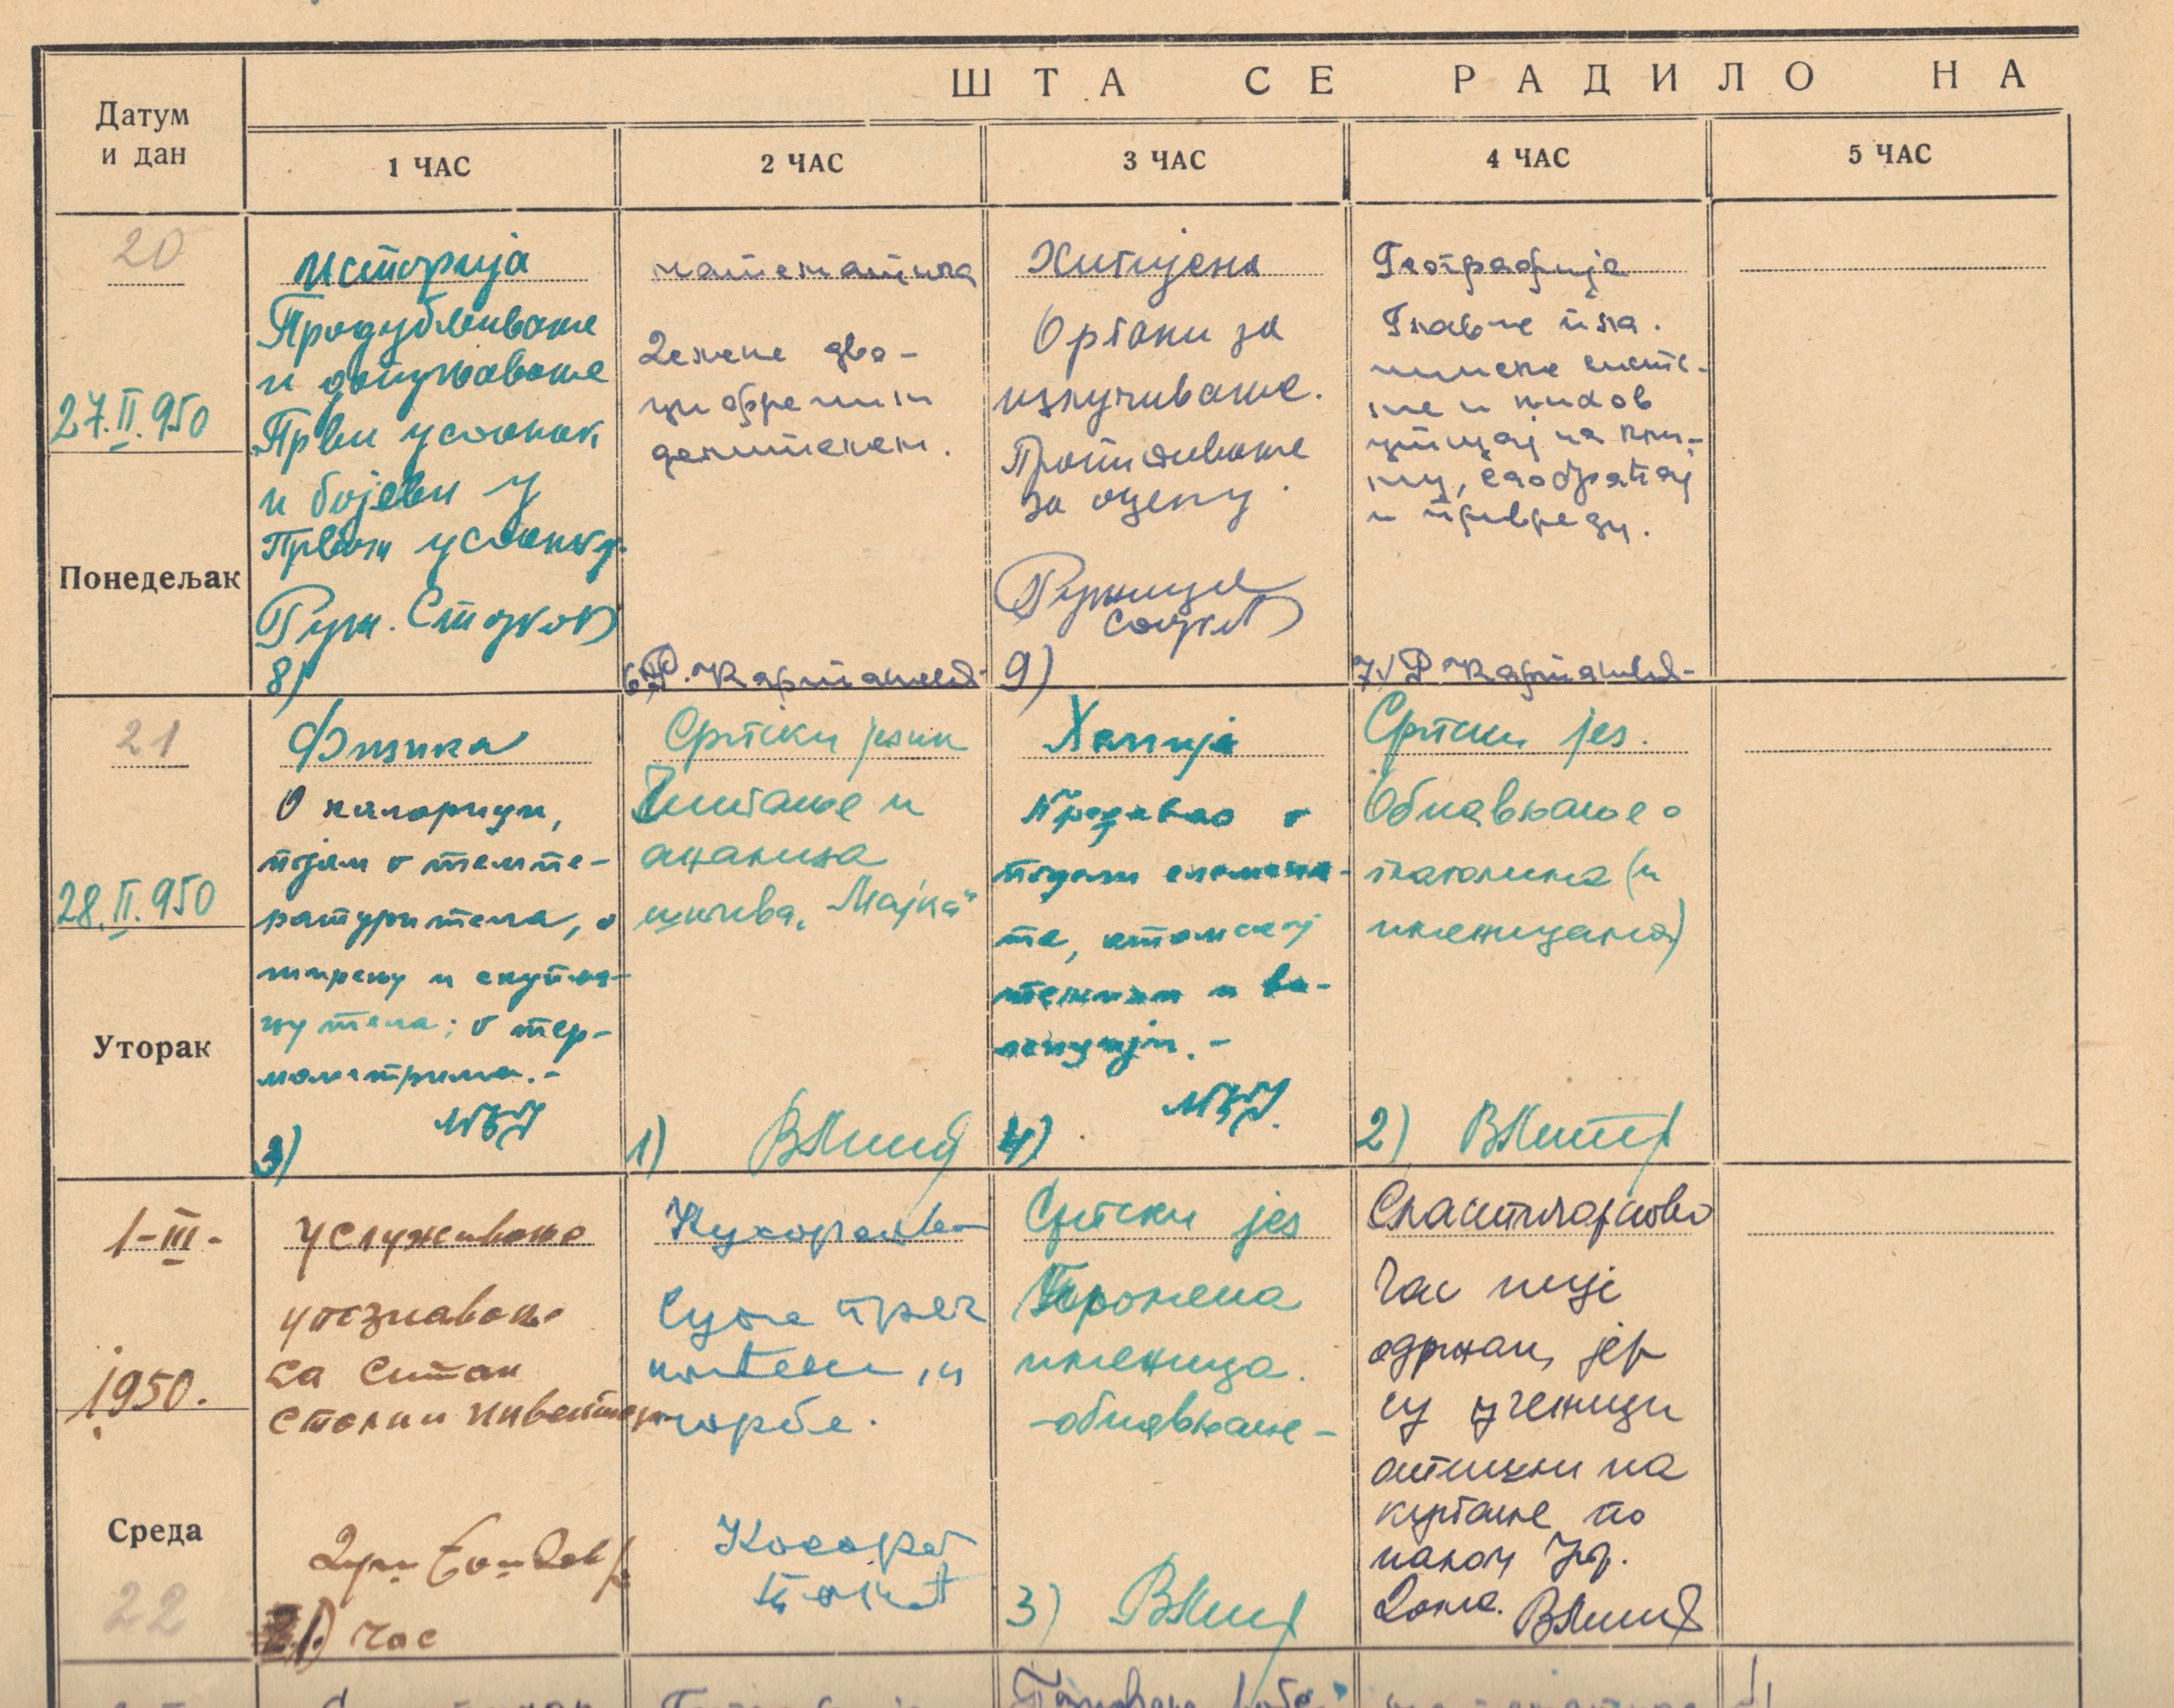 ШТА СЕ РАДИЛО НА
Датум
и дан
1 ЧАС
2 ЧАС
3 ЧАС
4 ЧАС
5 ЧАС
20
27.II.950
Понедељак
историја
Продубљивање
и допуњавање
Први устанак
и бојеви у
Првом устанку.
Руж.
8)
математика
Дељење дво-
цифреним
делитељем.
6)
Хигијена
Органи за
излучивање.
Пропитивање
за оцену.
Ружица
9)
Географија
Главне пла-
нинске систе-
ме и њихов
утицај на кли-
му, саобраћај
и привреду.
7)
21
28.II.950
Уторак
Физика
О калорици,
појам о темпе-
ратури тела, о
ширењу и скупља-
њу тела; о тер-
мометрима.-
3)
Српски језик
Читање и
анализа
штива „Мајка"
1)
Хемија
Предавао о
подели елемена-
та, атомској
тежини и ва-
ленцији.-
4)
Српски јез.
Обнављање о
глаголима (и
именицама)
2)
1-III-
1950.
Среда
22
Услуживање
упознавање
са ситан
стони инвентар
1) час
Кухарство
чорбе.
Српски јез
Промена
именица.
-обнављање-
3)
Сластичарство
Час није
одржан, јер
су ученици
отишли на
купање по
налогу Упр.
Дома.